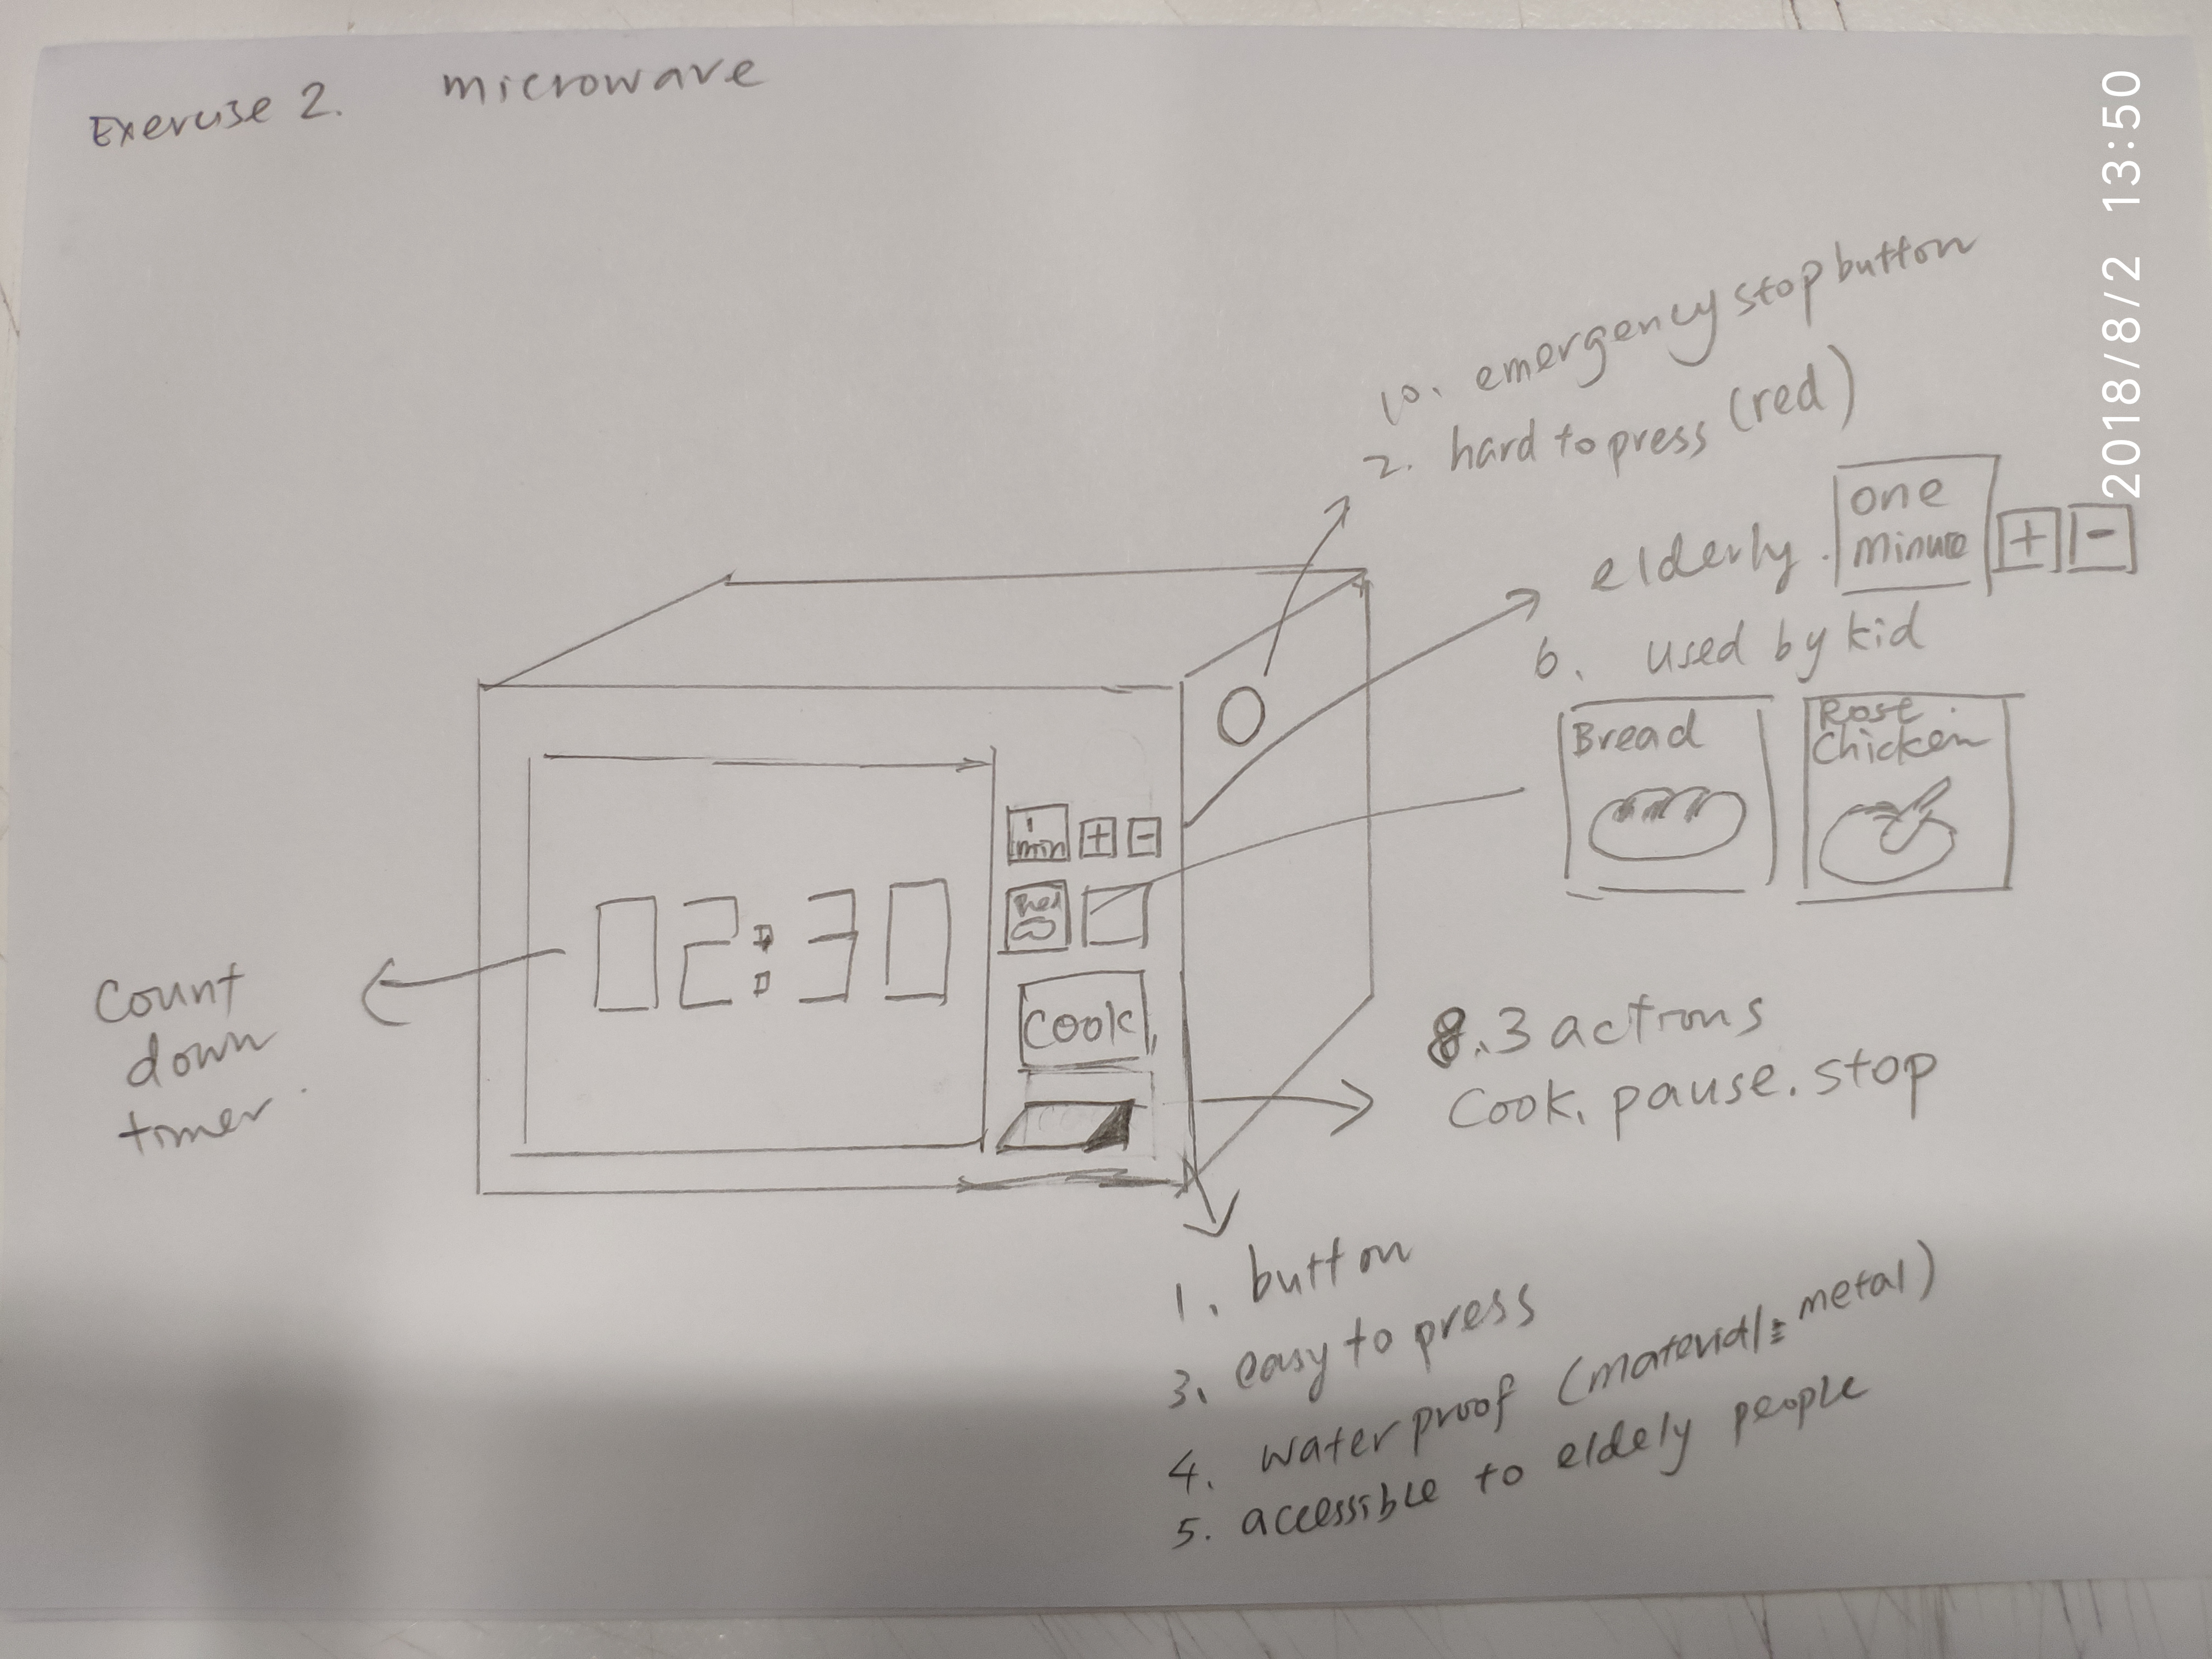 Exercise 2. microwave
2018/8/2 13:50
10. emergency stop button
2. hard to press (red)
elderly. one minute + -
6. used by kid
Bread
Rost Chicken
1 min + -
02:30
Cook
Count
down
timer.
8. 3 actions
Cook. pause. stop
1. button
3. easy to press
4. waterproof (material: metal)
5. accessible to eldely people